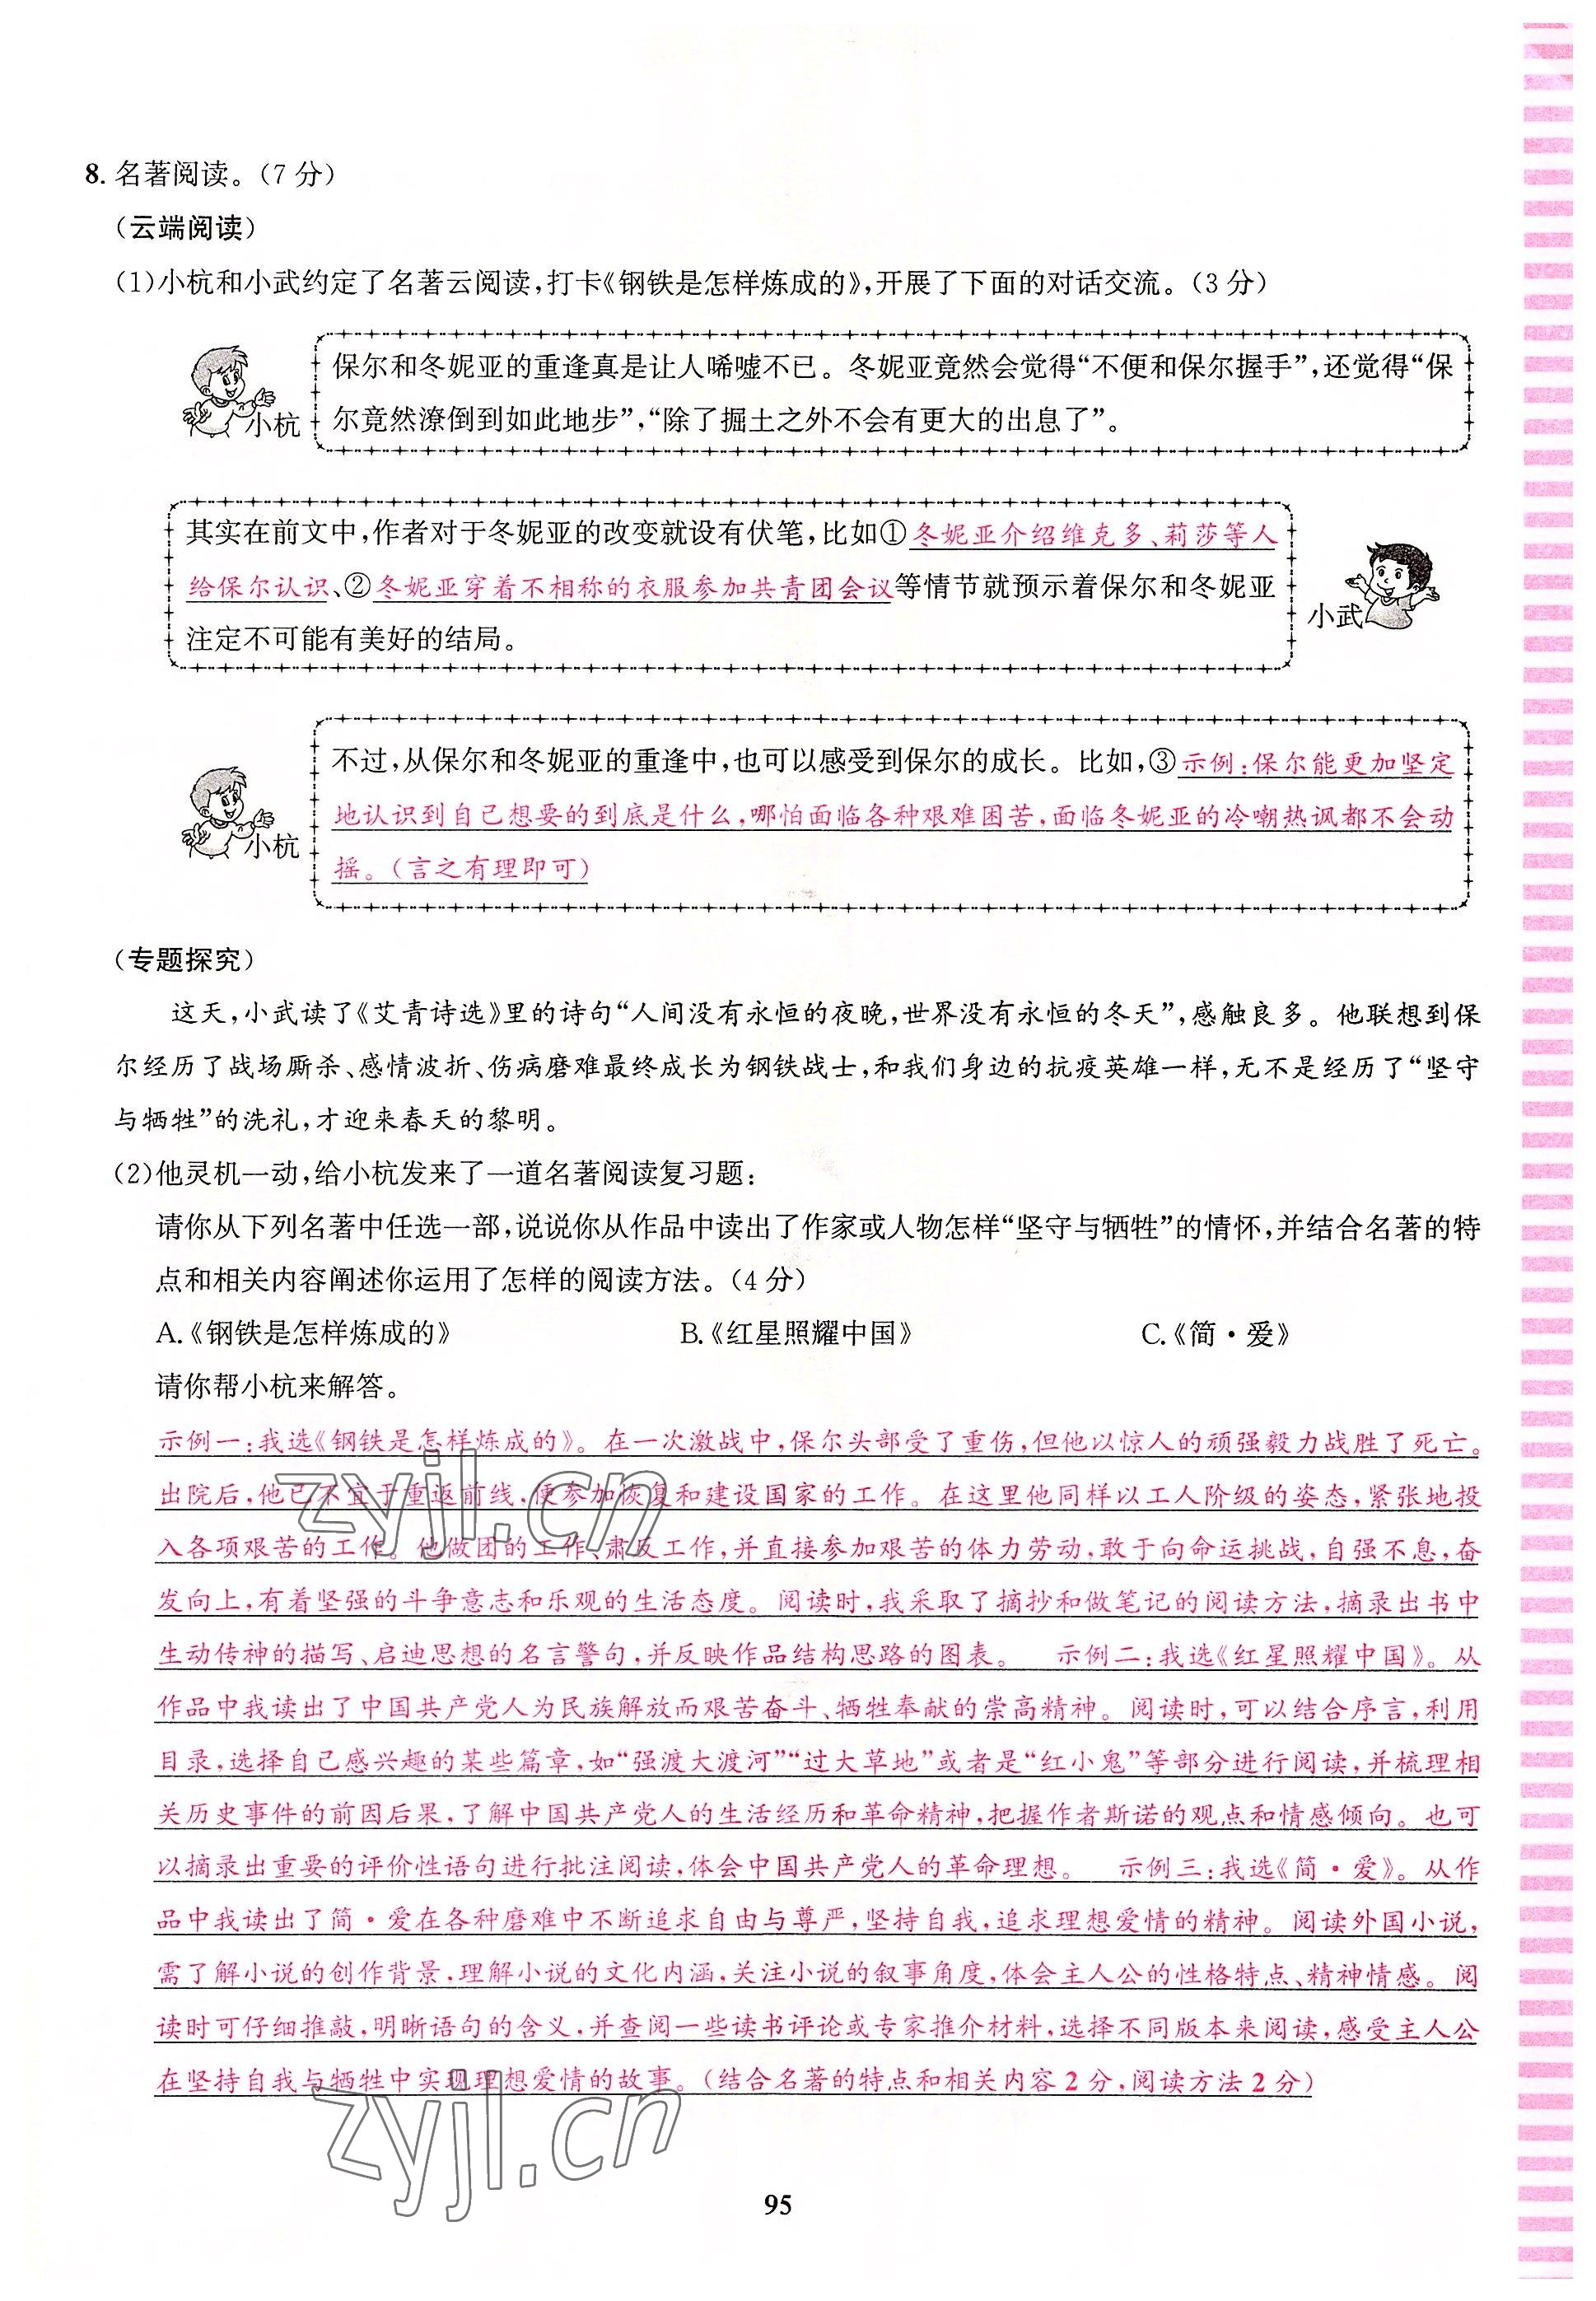 8. 名著阅读。(7 分)
(云端阅读)
(1)小杭和小武约定了名著云阅读,打卡《钢铁是怎样炼成的》,开展了下面的对话交流。(3 分)
保尔和冬妮亚的重逢真是让人唏嘘不已。冬妮亚竟然会觉得“不便和保尔握手”,还觉得“保
尔竟然潦倒到如此地步”,“除了掘土之外不会有更大的出息了”。
小杭
其实在前文中,作者对于冬妮亚的改变就设有伏笔,比如①冬妮亚介绍维克多、莉莎等人
给保尔认识、②冬妮亚穿着不相称的衣服参加共青团会议等情节就预示着保尔和冬妮亚
注定不可能有美好的结局。
小武
不过,从保尔和冬妮亚的重逢中,也可以感受到保尔的成长。比如,③示例:保尔能更加坚定
地认识到自己想要的到底是什么,哪怕面临各种艰难困苦,面临冬妮亚的冷嘲热讽都不会动
摇。(言之有理即可)
小杭
(专题探究)
这天,小武读了《艾青诗选》里的诗句“人间没有永恒的夜晚,世界没有永恒的冬天”,感触良多。他联想到保
尔经历了战场厮杀、感情波折、伤病磨难最终成长为钢铁战士,和我们身边的抗疫英雄一样,无不是经历了“坚守
与牺牲”的洗礼,才迎来春天的黎明。
(2)他灵机一动,给小杭发来了一道名著阅读复习题:
请你从下列名著中任选一部,说说你从作品中读出了作家或人物怎样“坚守与牺牲”的情怀,并结合名著的特
点和相关内容阐述你运用了怎样的阅读方法。(4 分)
A.《钢铁是怎样炼成的》 B.《红星照耀中国》 C.《简·爱》
请你帮小杭来解答。
示例一:我选《钢铁是怎样炼成的》。在一次激战中,保尔头部受了重伤,但他以惊人的顽强毅力战胜了死亡。
出院后,他已不宜于重返前线,便参加恢复和建设国家的工作。在这里他同样以工人阶级的姿态,紧张地投
入各项艰苦的工作。他做团的工作、肃反工作,并直接参加艰苦的体力劳动,敢于向命运挑战,自强不息,奋
发向上,有着坚强的斗争意志和乐观的生活态度。阅读时,我采取了摘抄和做笔记的阅读方法,摘录出书中
生动传神的描写、启迪思想的名言警句,并反映作品结构思路的图表。 示例二:我选《红星照耀中国》。从
作品中我读出了中国共产党人为民族解放而艰苦奋斗、牺牲奉献的崇高精神。阅读时,可以结合序言,利用
目录,选择自己感兴趣的某些篇章,如“强渡大渡河”“过大草地”或者是“红小鬼”等部分进行阅读,并梳理相
关历史事件的前因后果,了解中国共产党人的生活经历和革命精神,把握作者斯诺的观点和情感倾向。也可
以摘录出重要的评价性语句进行批注阅读,体会中国共产党人的革命理想。 示例三:我选《简·爱》。从作
品中我读出了简·爱在各种磨难中不断追求自由与尊严,坚持自我,追求理想爱情的精神。阅读外国小说,
需了解小说的创作背景,理解小说的文化内涵,关注小说的叙事角度,体会主人公的性格特点、精神情感。阅
读时可仔细推敲,明晰语句的含义,并查阅一些读书评论或专家推介材料,选择不同版本来阅读,感受主人公
在坚持自我与牺牲中实现理想爱情的故事。(结合名著的特点和相关内容 2 分,阅读方法 2 分)
zyjl.cn
zyjl.cn
95